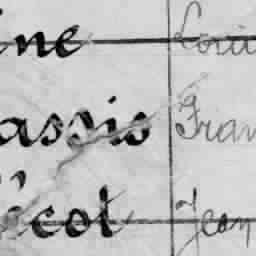 ine Loui
assis Fran
écot Jean